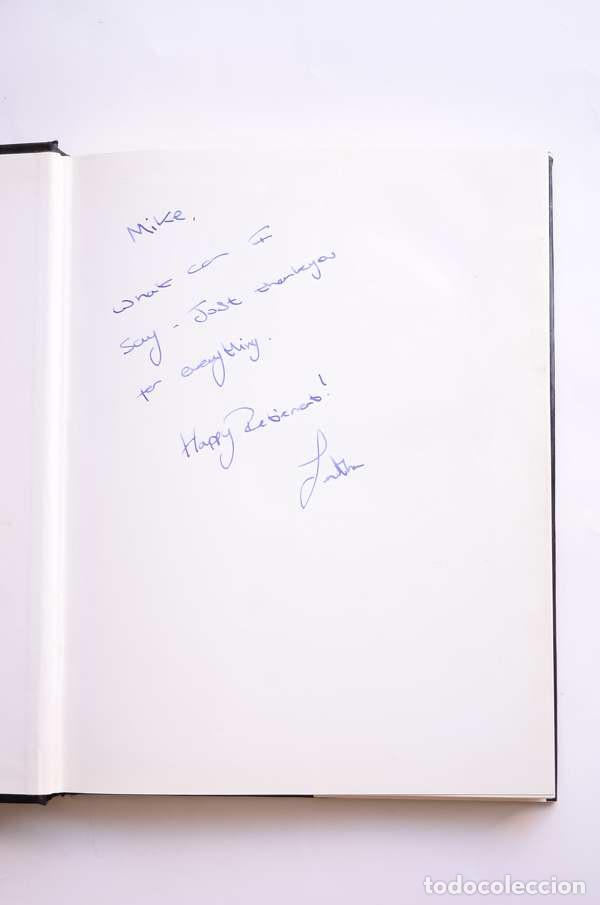 Mike,
What can I
say - Just thankyou
for everything.
Happy Retirement!
todocoleccion